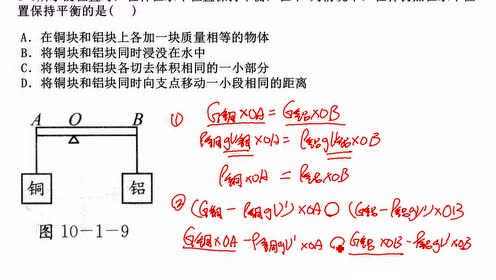 置保持平衡的是( )
A．在铜块和铝块上各加一块质量相等的物体
B．将铜块和铝块同时浸没在水中
C．将铜块和铝块各切去体积相同的一小部分
D．将铜块和铝块同时向支点移动一小段相同的距离
A O B
铜 铝
图 10-1-9
① G铜×OA = G铝×OB
ρ铜gV铜×OA = ρ铝gV铝×OB
ρ铜×OA = ρ铝×OB
② (G铜 - ρ铜gV')×OA○ (G铝-ρ铝gV')×OB
G铜×OA -ρ铜gV'×OA ○ G铝×OB -ρ铝gV'×OB